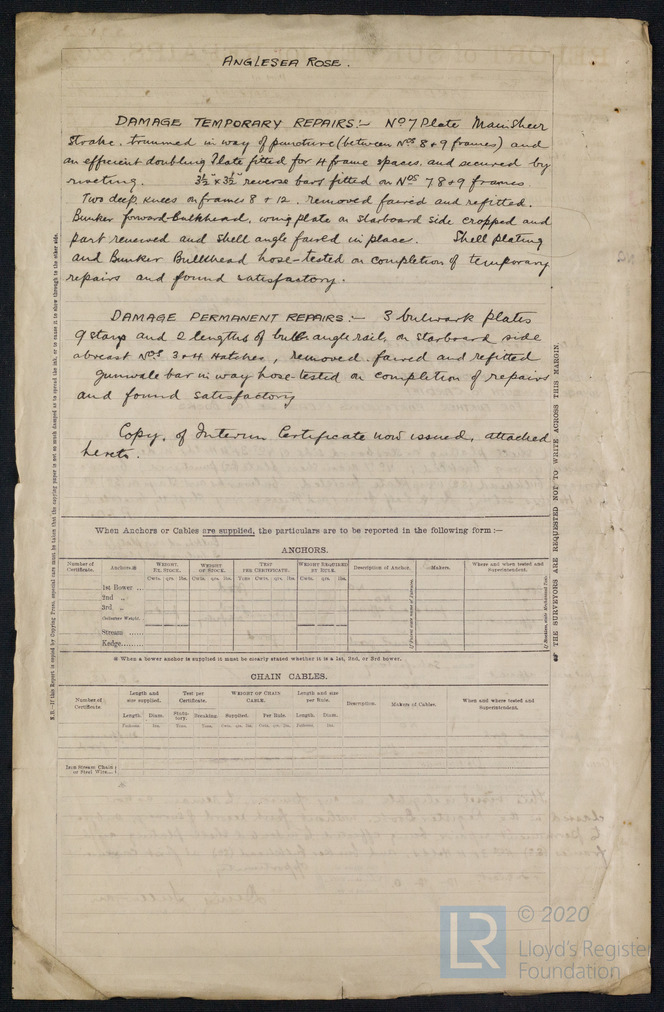 ANGLESEA ROSE.
DAMAGE TEMPORARY REPAIRS:- No 7 Plate Main Sheer
strake. trimmed in way of puncture (between Nos 8 + 9 frames) and
an efficient doubling plate fitted for 4 frame spaces, and secured by
riveting. 3½" x 3½" reverse bars fitted on Nos 7 8 + 9 frames
Two deep knees on frames 8 + 12. removed faired and refitted.
Bunker forward Bulkhead, wing plate on starboard side cropped and
part renewed and shell angle faired in place. Shell plating
and Bunker Bulkhead hose-tested on completion of temporary
repairs and found satisfactory.
DAMAGE PERMANENT REPAIRS:- 3 bulwark plates
9 stays and 2 lengths of bulb angle rail, on starboard side
abreast Nos 3 + 4 Hatches, removed faired and refitted
gunwale bar in way hose-tested on completion of repairs
and found satisfactory
Copy, of Interim Certificate now issued, attached
hereto.
When Anchors or Cables are supplied, the particulars are to be reported in the following form:—
ANCHORS.
Number of Certificate. Anchors.* WEIGHT, EX. STOCK. WEIGHT OF STOCK. TEST PER CERTIFICATE. WEIGHT REQUIRED BY RULE. Description of Anchor. Makers. Where and when tested and Superintendent.
Cwts. qrs. lbs. Cwts. qrs. lbs. Tons Cwts. qrs. lbs. Cwts. qrs. lbs.
1st Bower ..
2nd „
3rd „
Collective Weight.
Stream ......
Kedge......
* When a bower anchor is supplied it must be clearly stated whether it is a 1st, 2nd, or 3rd bower.
CHAIN CABLES.
Number of Certificate. Length and size supplied. Test per Certificate. WEIGHT OF CHAIN CABLE. Length and size per Rule. Description. Makers of Cables. When and where tested and Superintendent.
Length. Diam. Statutory. Breaking. Supplied. Per Rule. Length. Diam.
Fathoms. Ins. Tons. Tons. Cwts. qrs. lbs. Cwts. qrs. lbs. Fathoms. Ins.
Iron Stream Chain or Steel Wire...
N.B.—If this Report is copied by Copying Press, special care must be taken that the copying paper is not so much damped as to spread the ink, or to cause it to show through to the other side.
THE SURVEYORS ARE REQUESTED NOT TO WRITE ACROSS THIS MARGIN.
LR
© 2020
Lloyd's Register
Foundation